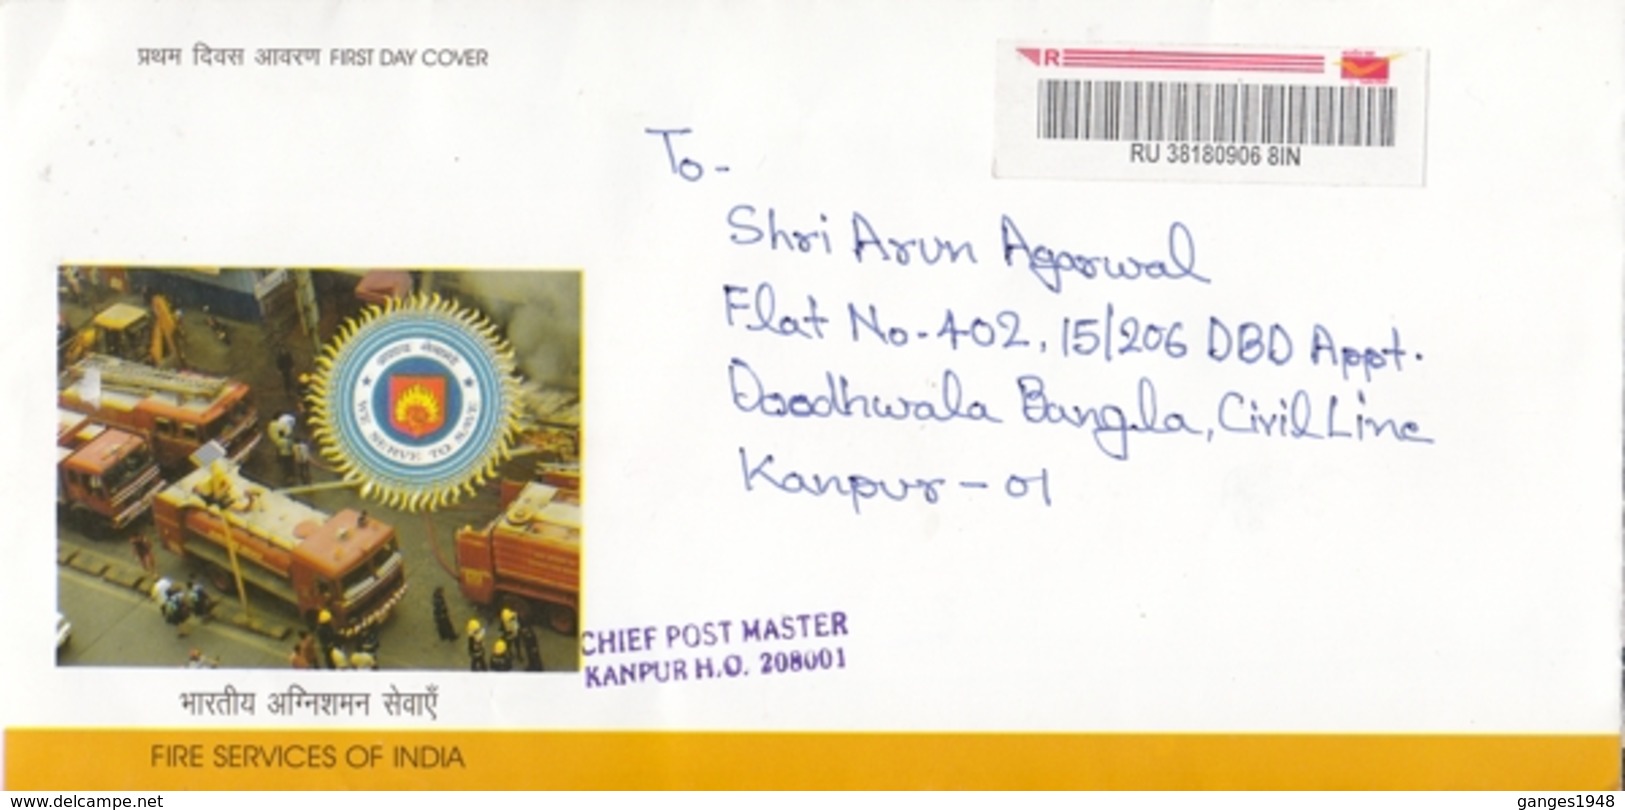 प्रथम दिवस आवरण FIRST DAY COVER
R
RU 38180906 8IN
To -
Shri Arun Agarwal
Flat No - 402, 15/206 DBD Appt.
Doodhwala Bangla, Civil Line
Kanpur - 01
WE SERVE TO SAVE
CHIEF POST MASTER
KANPUR H.O. 208001
भारतीय अग्निशमन सेवाएँ
FIRE SERVICES OF INDIA
www.delcampe.net
ganges1948